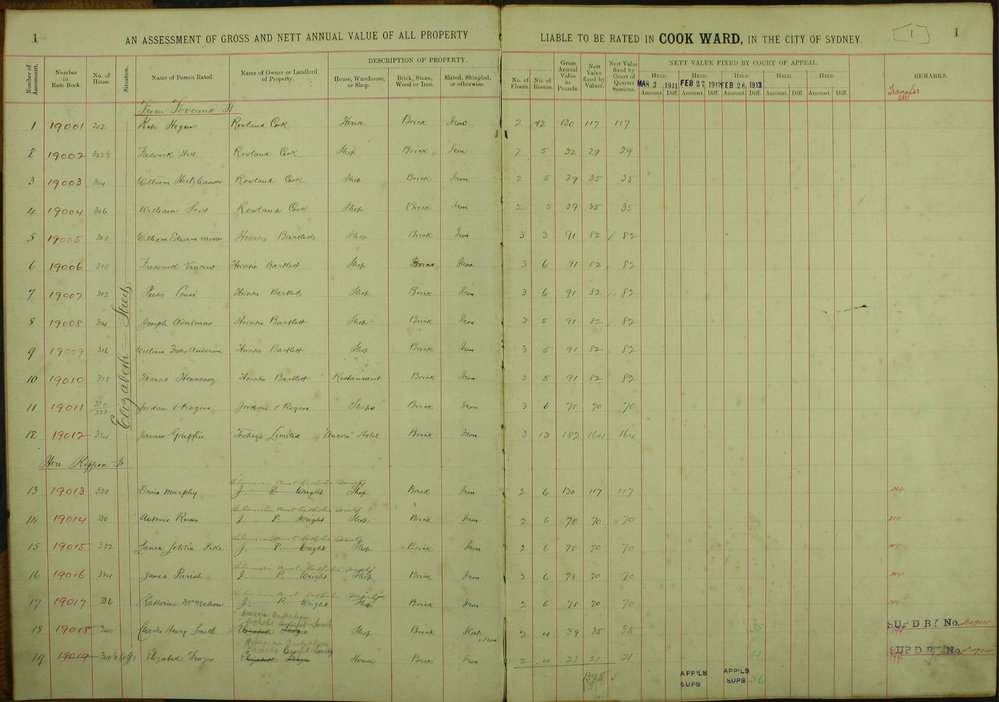 1 AN ASSESSMENT OF GROSS AND NETT ANNUAL VALUE OF ALL PROPERTY
LIABLE TO BE RATED IN COOK WARD, IN THE CITY OF SYDNEY. 1 1
Number of Assessment. Number in Rate Book. No. of House. Situation. Name of Person Rated. Name of Owner or Landlord of Property. DESCRIPTION OF PROPERTY. House, Warehouse, or Shop. Brick, Stone, Wood or Iron. Slated, Shingled, or otherwise.
No. of Floors. No. of Rooms. Gross Annual Value in Pounds. Nett Value fixed by Valuer. Nett Value fixed by Court of Quarter Sessions. NETT VALUE FIXED BY COURT OF APPEAL. REMARKS.
HELD. HELD. HELD. HELD. HELD.
MAR 3 1911 FEB 27 1912 FEB 26 1913
Amount. Diff. Amount. Diff. Amount. Diff. Amount. Diff. Amount. Diff.
Transfer
From Foveaux St
Elizabeth Street
1 19001 302 Kate Hogan Rowland Cook House Brick Iron 2 12 130 117 117
2 19002 302½ Frederick Hill Rowland Cook Shop Brick Iron 2 5 32 29 29
3 19003 304 William Rowland Cook Shop Brick Iron 2 5 39 35 35
4 19004 306 William Scott Rowland Cook Shop Brick Iron 2 5 39 35 35
5 19005 308 William Edward Moore Horatio Bartlett Shop Brick Iron 3 3 91 82 82
6 19006 310 Frederick Vincent Horatio Bartlett Shop Brick Iron 3 6 91 82 82
7 19007 312 Horatio Bartlett Shop Brick Iron 3 6 91 82 82
8 19008 314 Joseph Horatio Bartlett Shop Brick Iron 3 5 91 82 82
9 19009 316 William Anderson Horatio Bartlett Shop Brick Iron 3 5 91 82 82
10 19010 318 Thomas Hennessy Horatio Bartlett Restaurant Brick Iron 3 5 91 82 82
11 19011 320 322 Jordan & Rogers Jordan & Rogers Shops Brick Iron 3 6 78 70 70
12 19012 324 James Griffin Limited Hotel Brick Iron 3 13 182 164 164
Here Kippax St
13 19013 328 Denis Murphy J. P. Wright Shop Brick Iron 2 6 130 117 117
14 19014 330 Antonio Russo J. P. Wright Shop Brick Iron 2 6 78 70 70
15 19015 332 Laura J. P. Wright Shop Brick Iron 2 6 78 70 70
16 19016 334 James Parish J. P. Wright Shop Brick Iron 2 6 78 70 70
17 19017 336 Katherine McMahon J. P. Wright Shop Brick Iron 2 6 78 70 70
Hibernian Australian Catholic Benefit Society
18 19018 340 Charles Henry Smith Elizabeth Frazer Shop Brick Slate & Iron 2 4 39 35 35 35 SUPD BY No.
Hibernian Australian Catholic Benefit Society
19 19019 Elizabeth Frazer Elizabeth Frazer House Brick Iron 2 4 23 21 21 21 SUPD BY No.
1395
APP'LS APP'LS
SUPS SUPS 56